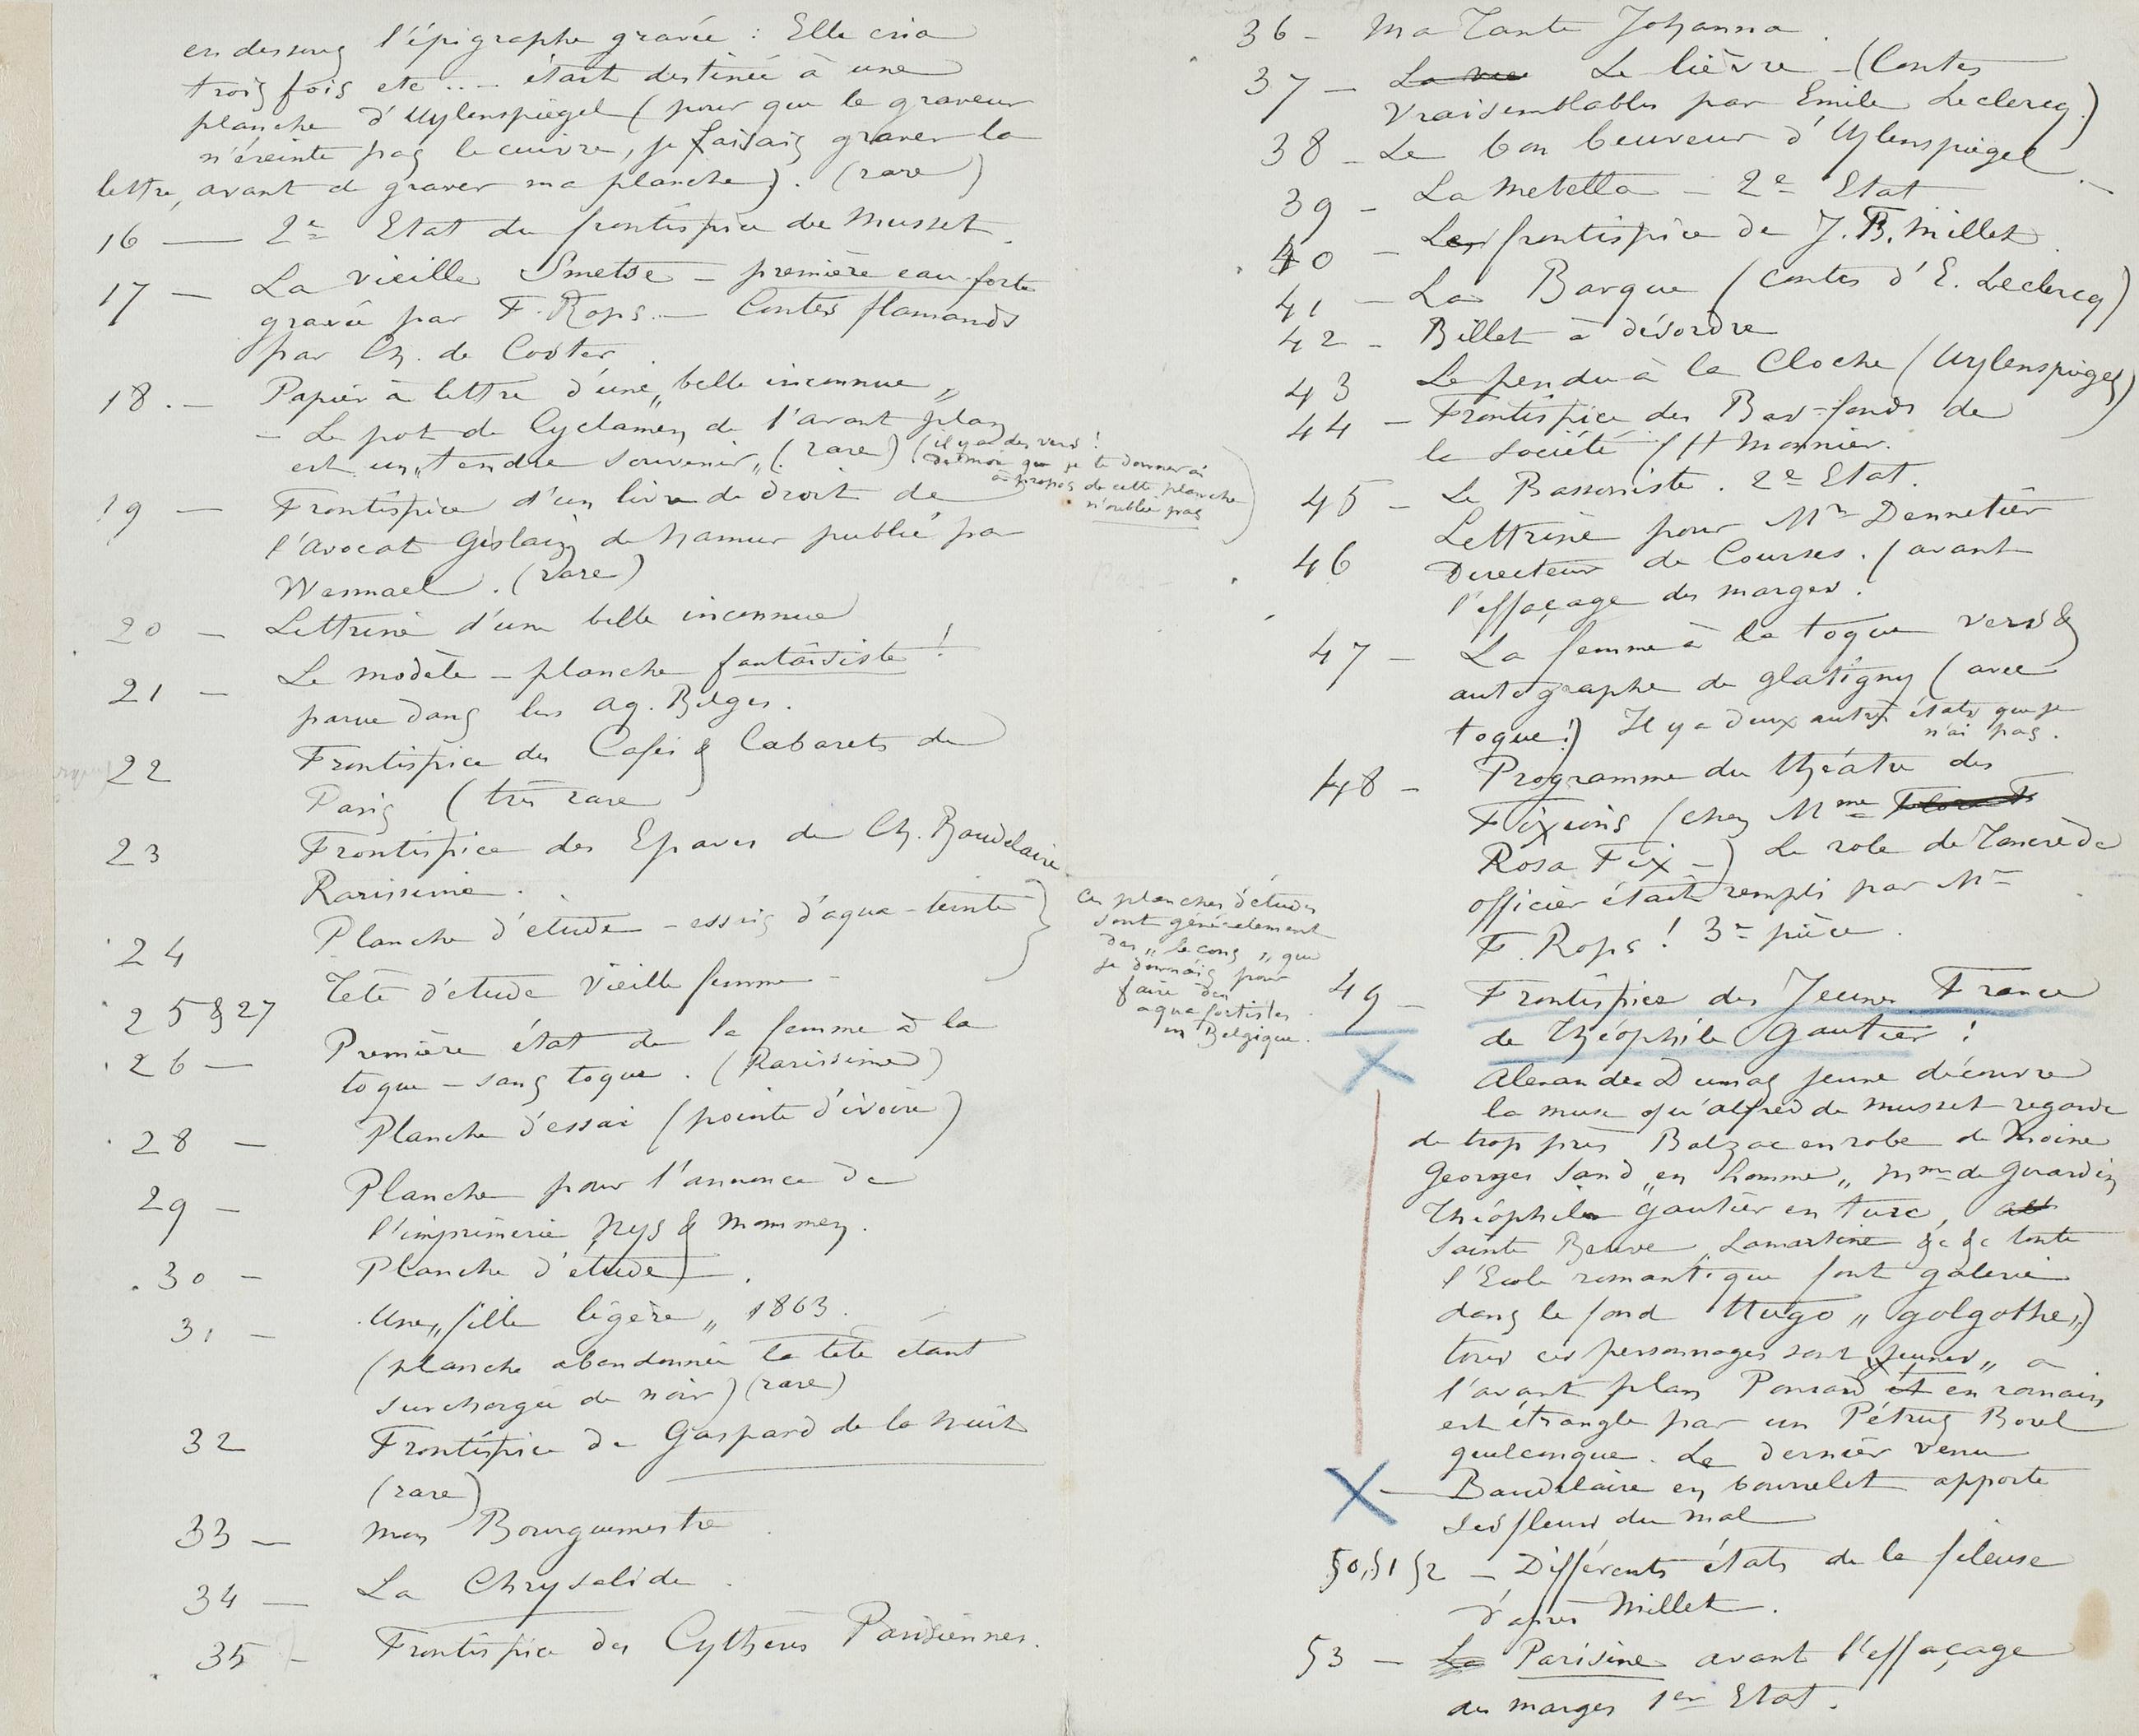 en dessous l'épigraphe gravée : Elle cria
trois fois etc .... était destinée à une
planche d'Uylenspiegel (pour que le graveur
n'éreinte pas le cuivre, je faisais graver la
lettre, avant de graver ma planche). (rare)
16 — 2e Etat du frontispice du Musset.
17 — La vieille Smetse — première eau-forte
gravée par F. Rops. — Contes flamands
par Ch. de Coster.
18. — Papier à lettre d'une „belle inconnue„
— Le pot de Cyclamen de l'avant plan
est un „tendre souvenir„ (rare) (il y a des vers!
dis moi que je te donnerai
à propos de cette planche
n'oublie pas)
19 — Frontispice d'un livre de droit de
l'avocat Gislain de Namur publié par
Wesmael. (rare)
20 — Lettrine d'une belle inconnue
21 — Le modèle — planche fantaisiste !
parue dans les aq. Belges.
22 Frontispice des Cafés & Cabarets de
Paris (très rare
23 Frontispice des Epaves de Ch. Baudelaire
Rarissime.
24 Planche d'étude — essais d'aqua-teinte
25 & 27 Tête d'étude vieille femme —
Ces planches d'études
sont généralement
des „leçons„ que
je donnais pour
faire des
aquafortistes
en Belgique.
26 — Première état de la femme à la
toque — sans toque. (Rarissime)
28 — Planche d'essai (pointe d'ivoire)
29 — Planche pour l'annonce de
l'imprimerie Nys & Mommen.
30 — Planche d'étude.
31 — Une „fille légère„ 1863.
(planche abandonnée la tête étant
surchargée de noir) (rare)
32 Frontispice de Gaspard de la Nuit
(rare)
33 — Mon Bourguemestre.
34 — La Chrysalide.
35 — Frontispice des Cythères Parisiennes.
36 — Ma Tante Johanna.
37 — La vie Le lièvre — (Contes
vraisemblables par Emile Leclercq.)
38 — Le bon beuveur d'Uylenspiegel.—
39 — La Metella — 2e Etat
40 — Le frontispice de J. B. Millet.
41 — La Barque (contes d'E. Leclercq)
42 — Billet à désordre
43 Le pendu à la Cloche (Uylenspiegel)
44 — Frontispice des Bas-fonds de
la Société (H Monnier.
45 — Le Bassoniste. 2e Etat.
46 Lettrine pour Mr Dennetier
Directeur de Courses. (avant
l'effaçage des marges.
47 — La femme à la toque vers &
autographe de Glatigny (avec
toque!) Il y a deux autres états que je
n'ai pas.
48 — Programme du théâtre des
Fixions (chez Mme
Rosa Fix —) Le role de Tancrède
officier était rempli par Mr
F. Rops ! 3e pièce.
49 — Frontispice des Jeunes France
de Théophile Gautier !
Alexandre Dumas jeune découvre
la muse qu'alfred de Musset regarde
de trop près Balzac en robe de Moine
Georges Sand „en homme„ Mme de Girardin
Théophile Gautier en turc,
Sainte Beuve, Lamartine &c &c toute
l'Ecole romantique font galerie
dans le fond Hugo „golgothe„)
tous ces personnages sont „jeunes„ a
l'avant plan Ponsard et en romain
est étranglé par un Pétrus Borel
quelconque. Le dernier venu
Baudelaire en bourrelet apporte
ses fleurs du mal
50, 51 52 — Différents états de la fileuse
d'après Millet.
53 — La Parisine avant l'effaçage
des marges 1er Etat.